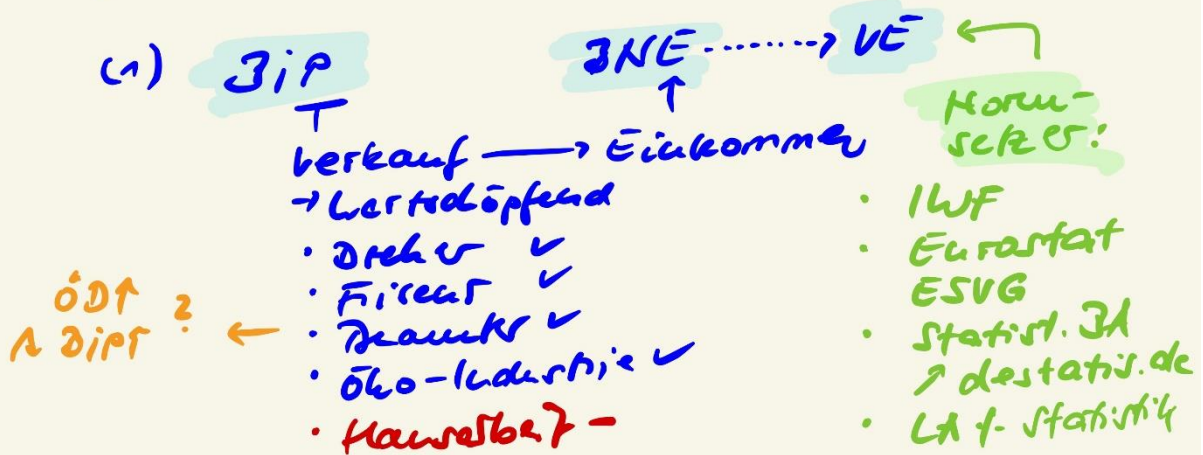 (1) BiP BNE → VE ←
Norm-
setzer:
Verkauf → Einkommen
→ wertschöpfend
· Dreher ✓
· Friseur ✓
· Beamter ✓
· Öko-Industrie ✓
· Hausarbeit –
ÖD↑
?
←
· IWF
· Eurostat
ESVG
· Statist. BA
↗ destatis.de
· LA f. Statistik